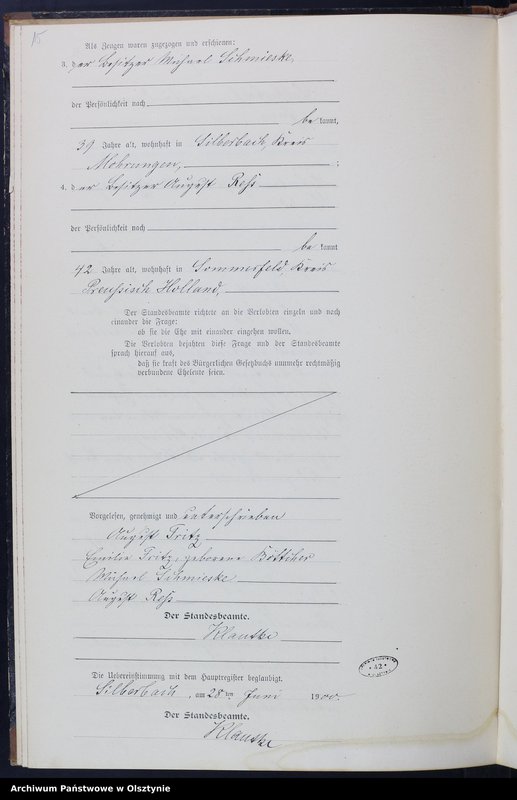 15
Als Zeugen waren zugezogen und erschienen:
3. der Besitzer Michael Schmieske,
der Persönlichkeit nach
be kannt,
39 Jahre alt, wohnhaft in Silberbach, Kreis
Mohrungen, ;
4. der Besitzer August Roß
der Persönlichkeit nach
be kannt
42 Jahre alt, wohnhaft in Sommerfeld, Kreis
Preußisch Holland,
Der Standesbeamte richtete an die Verlobten einzeln und nach
einander die Frage:
ob sie die Ehe mit einander eingehen wollen.
Die Verlobten bejahten diese Frage und der Standesbeamte
sprach hierauf aus,
daß sie kraft des Bürgerlichen Gesetzbuchs nunmehr rechtmäßig
verbundene Eheleute seien.
Vorgelesen, genehmigt und unterschrieben
August Fritz
Emilie Fritz, geborene Böttcher
Michael Schmieske
August Roß
Der Standesbeamte.
Klautke
Die Uebereinstimmung mit dem Hauptregister beglaubigt.
Silberbach, am 28 ten Juni 1900.
Der Standesbeamte.
Klautke
42
Archiwum Państwowe w Olsztynie